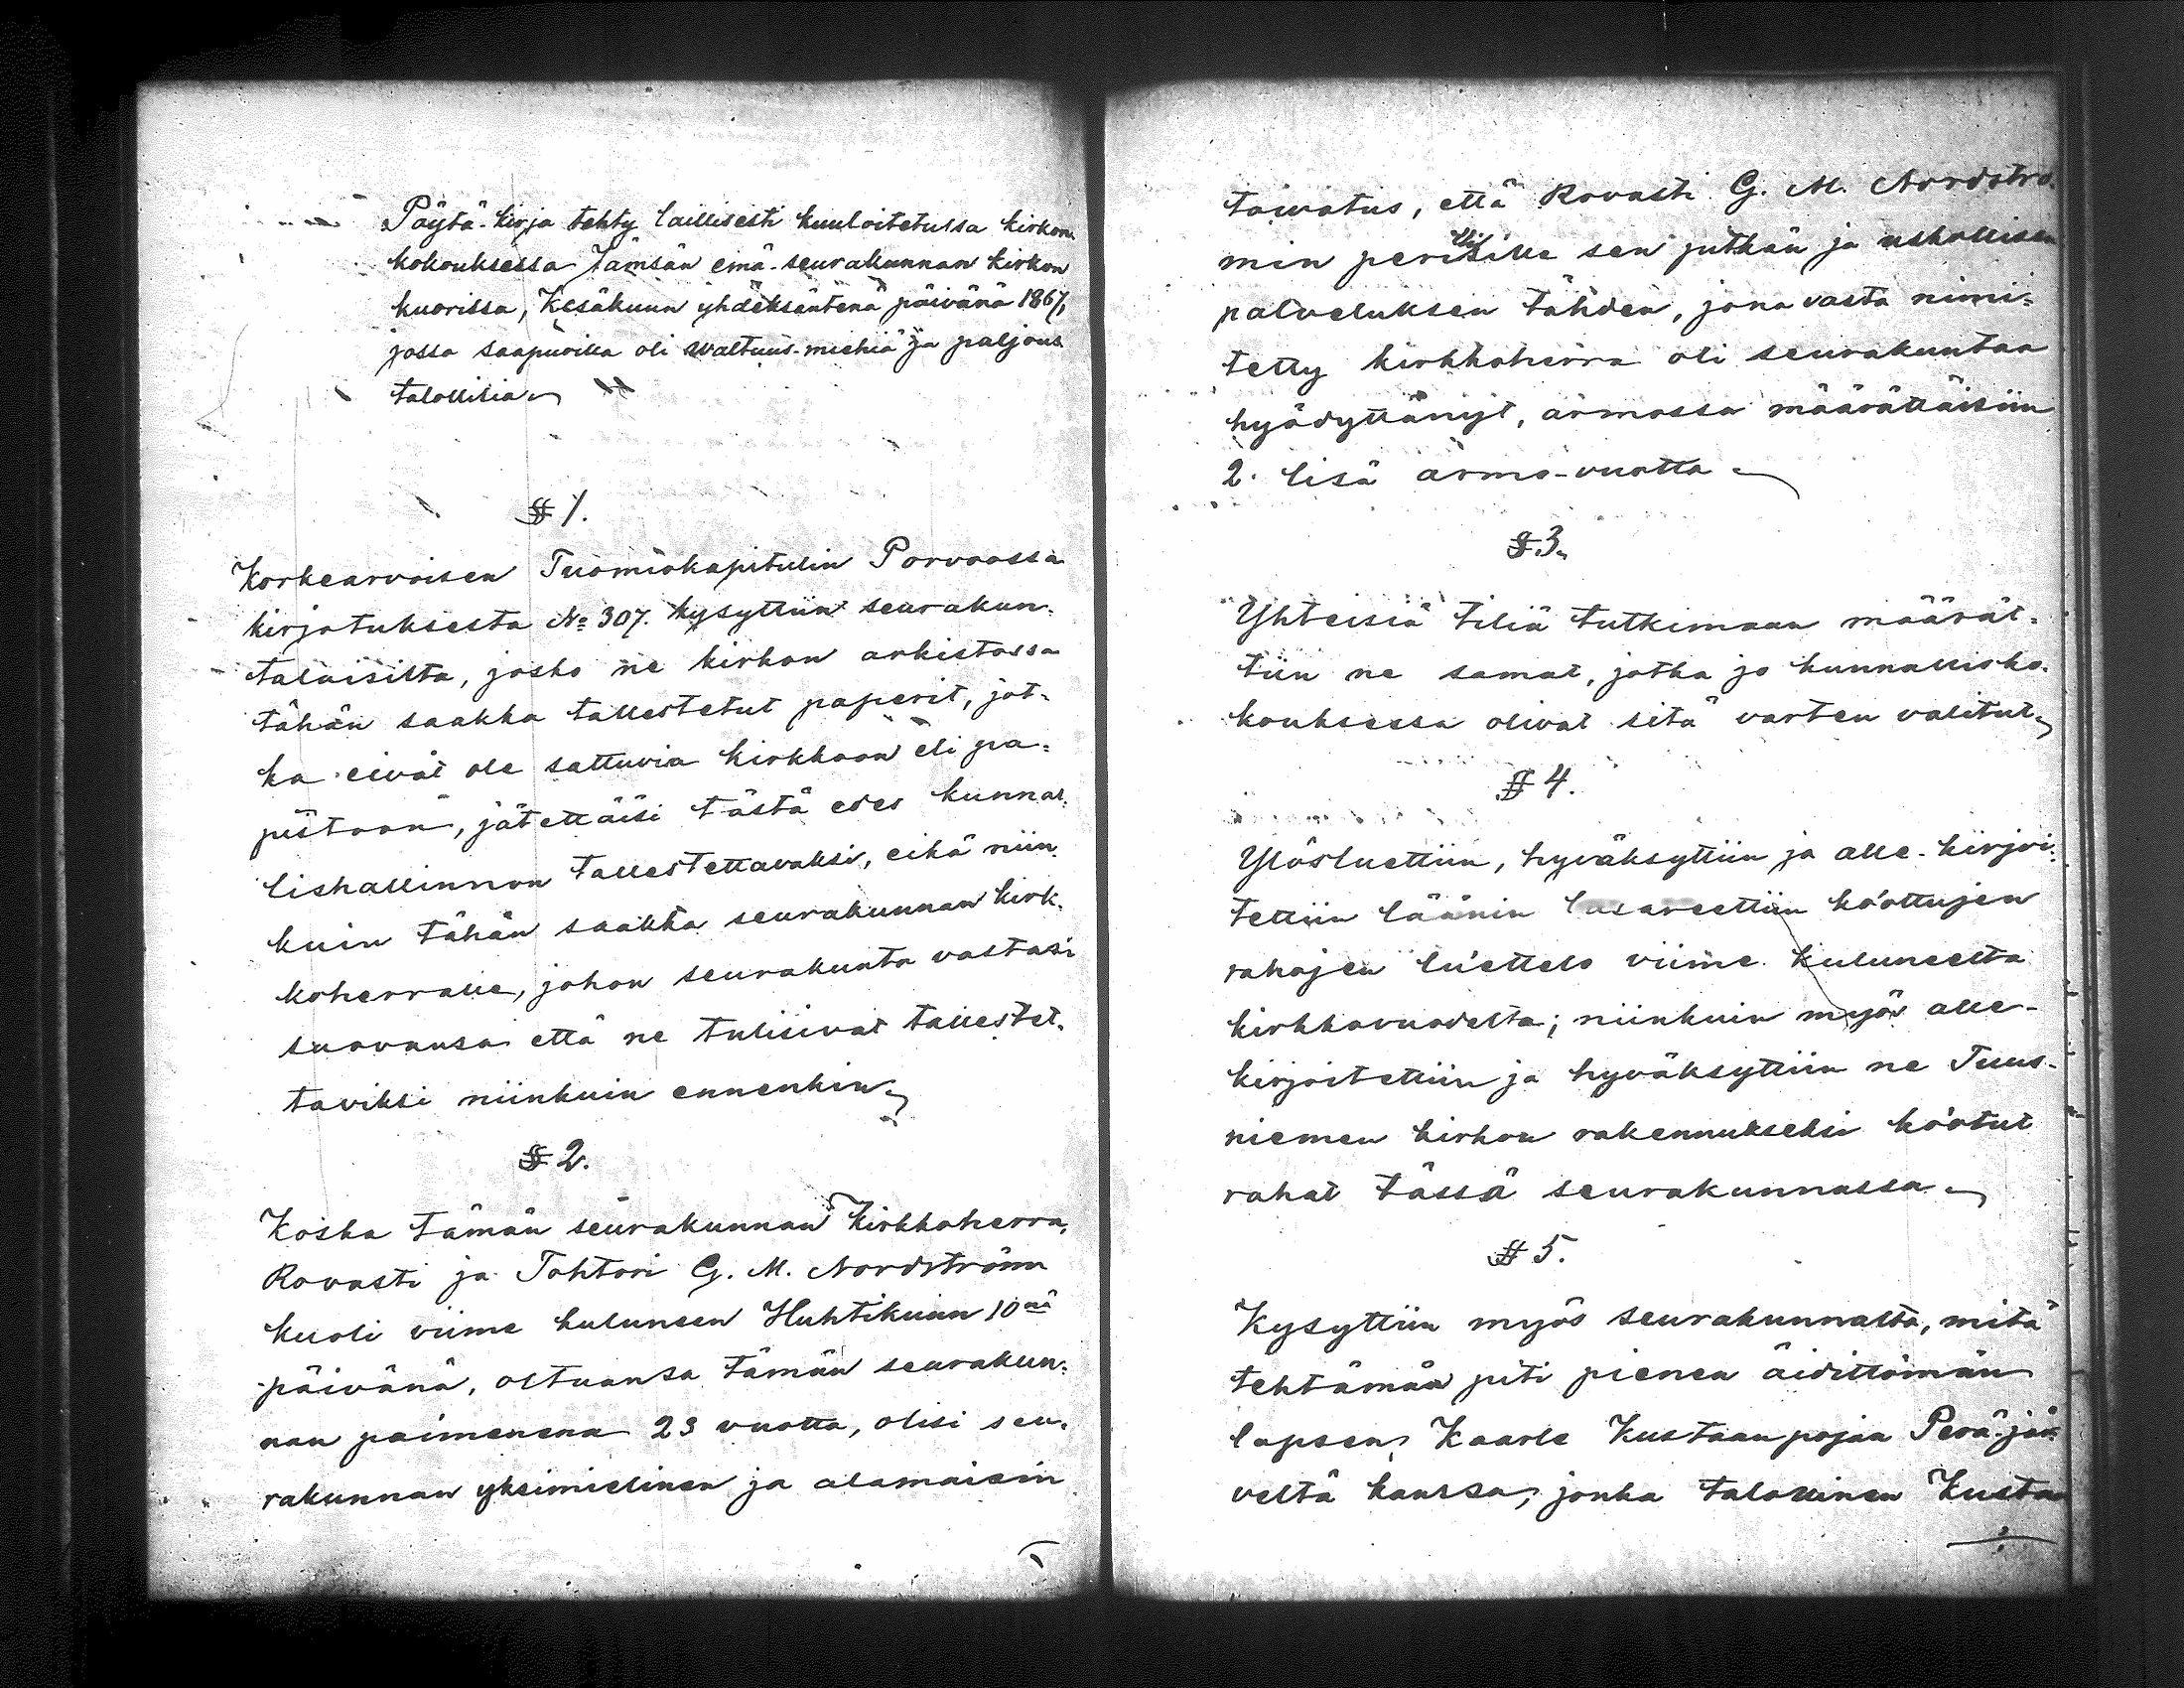 Pöytä-kirja tehty laillisesti kuuloitetussa kirkon
kokouksessa Jämsän emä-seurakunnan kirkon
kuorissa, Kesäkuun yhdeksäntenä päivänä 1867,
jossa saapuvilla oli waltuus-miehiä ja paljous
talollisia
§ 1.
Korkearvoisen Tuomiokapitulin Porvoossa
kirjotuksesta № 307. kysyttiin seurakun-
talaisilta, josko ne kirkon arkistossa
tähän saakka tallestetut paperit, jot-
ka eivät ole sattuvia kirkkoon eli pa-
pistoon, jätettäisi tästä edes kunnal-
lishallinnon tallestettavaksi, eikä niin-
kuin tähän saakka seurakunnan kirk-
koherralle, johon seurakunta vastasi
suovansa että ne tulisivat tallestet-
taviksi niinkuin ennenkin
§ 2.
Koska tämän seurakunnan Kirkkoherra,
Rovasti ja Tohtori G. M. Nordström
kuoli viime kuluneen Huhtikuun 10nä
päivänä, oltuansa tämän seurakun-
nan paimenena 23 vuotta, olisi seu-
rakunnan yksimielinen ja alamaisin
toivotus, että Rovasti G. M. Nordströ-
min perillisille sen pitkän ja uskollisen
palveluksen tähden, jona vasta nimi-
tetty kirkkoherra oli seurakuntaa
hyödyttänyt, armossa määrättäisiin
2. lisä armo-vuotta
§ 3.
Yhteisiä tiliä tutkimaan määrät-
tiin ne samat, jotka jo kunnallisko-
kouksessa olivat sitä varten valitut
§ 4.
Ylösluettiin, hyväksyttiin ja alle-kirjoi-
tettiin läänin lasareettiin koottujen
rahojen luettelo viime kuluneelta
kirkkovuodelta; niinkuin myös alle-
kirjoitettiin ja hyväksyttiin ne Tuus-
niemen kirkon rakennukseksi kootut
rahat tässä seurakunnassa
§ 5.
Kysyttiin myös seurakunnalta, mitä
tehtämän piti pienen äidittömän
lapsen, Kaarle Kustaanpojan Perä-jär-
veltä kanssa, jonka talollinen Kusta